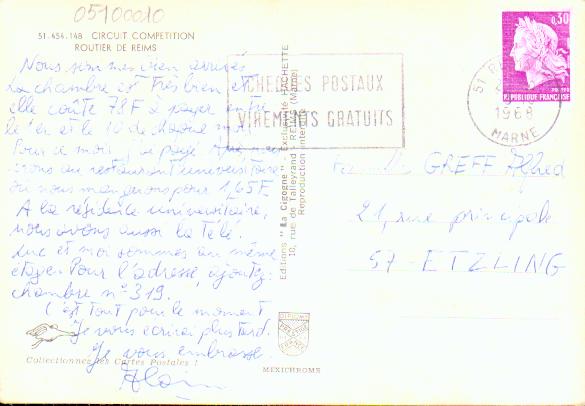 05100010
51.454.148 CIRCUIT COMPETITION
ROUTIER DE REIMS
Nous sommes bien arrivés
La chambre est très bien et
elle coûte 78F à payer entre
le 1er et le 10 de chaque mois
Pour ce mois, j'ai payé
au restaurant universitaire
où nous mangeons pour 1,65F
A la résidence universitaire,
nous avons aussi la télé.
Luc et moi sommes au même
étage. Pour l'adresse, ajoutez:
chambre n° 319.
C'est tout pour le moment
Je vous écrirai plus tard.
Je vous embrasse.
Alain
Collectionnez les Cartes Postales !
MEXICHROME
Editions "La Cigogne" Exclusivité HACHETTE
10, rue de Talleyrand - REIMS (Marne)
Reproduction interdite
CHEQUES POSTAUX
VIREMENTS GRATUITS
0,30
REPUBLIQUE FRANÇAISE
51
1968
MARNE
GREFF Alfred
21, rue principale
57-ETZLING